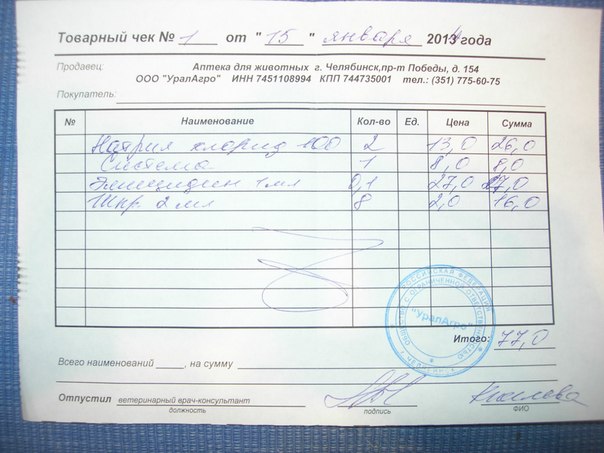 Товарный чек № 1 от "15" января 2014 года
Продавец: Аптека для животных г. Челябинск,пр-т Победы, д. 154
ООО "УралАгро" ИНН 7451108994 КПП 744735001 тел.: (351) 775-60-75
Покупатель:
№ Наименование Кол-во Ед. Цена Сумма
Натрия хлорид 100 2 13,0 26,0
Система 1 8,0 8,0
Эмицидин 1 мл 0,1 27,0 27,0
Шпр. 2 мл 8 2,0 16,0
"УралАгро"
Итого: 77,0
Всего наименований , на сумму
Отпустил ветеринарный врач-консультант
должность подпись ФИО